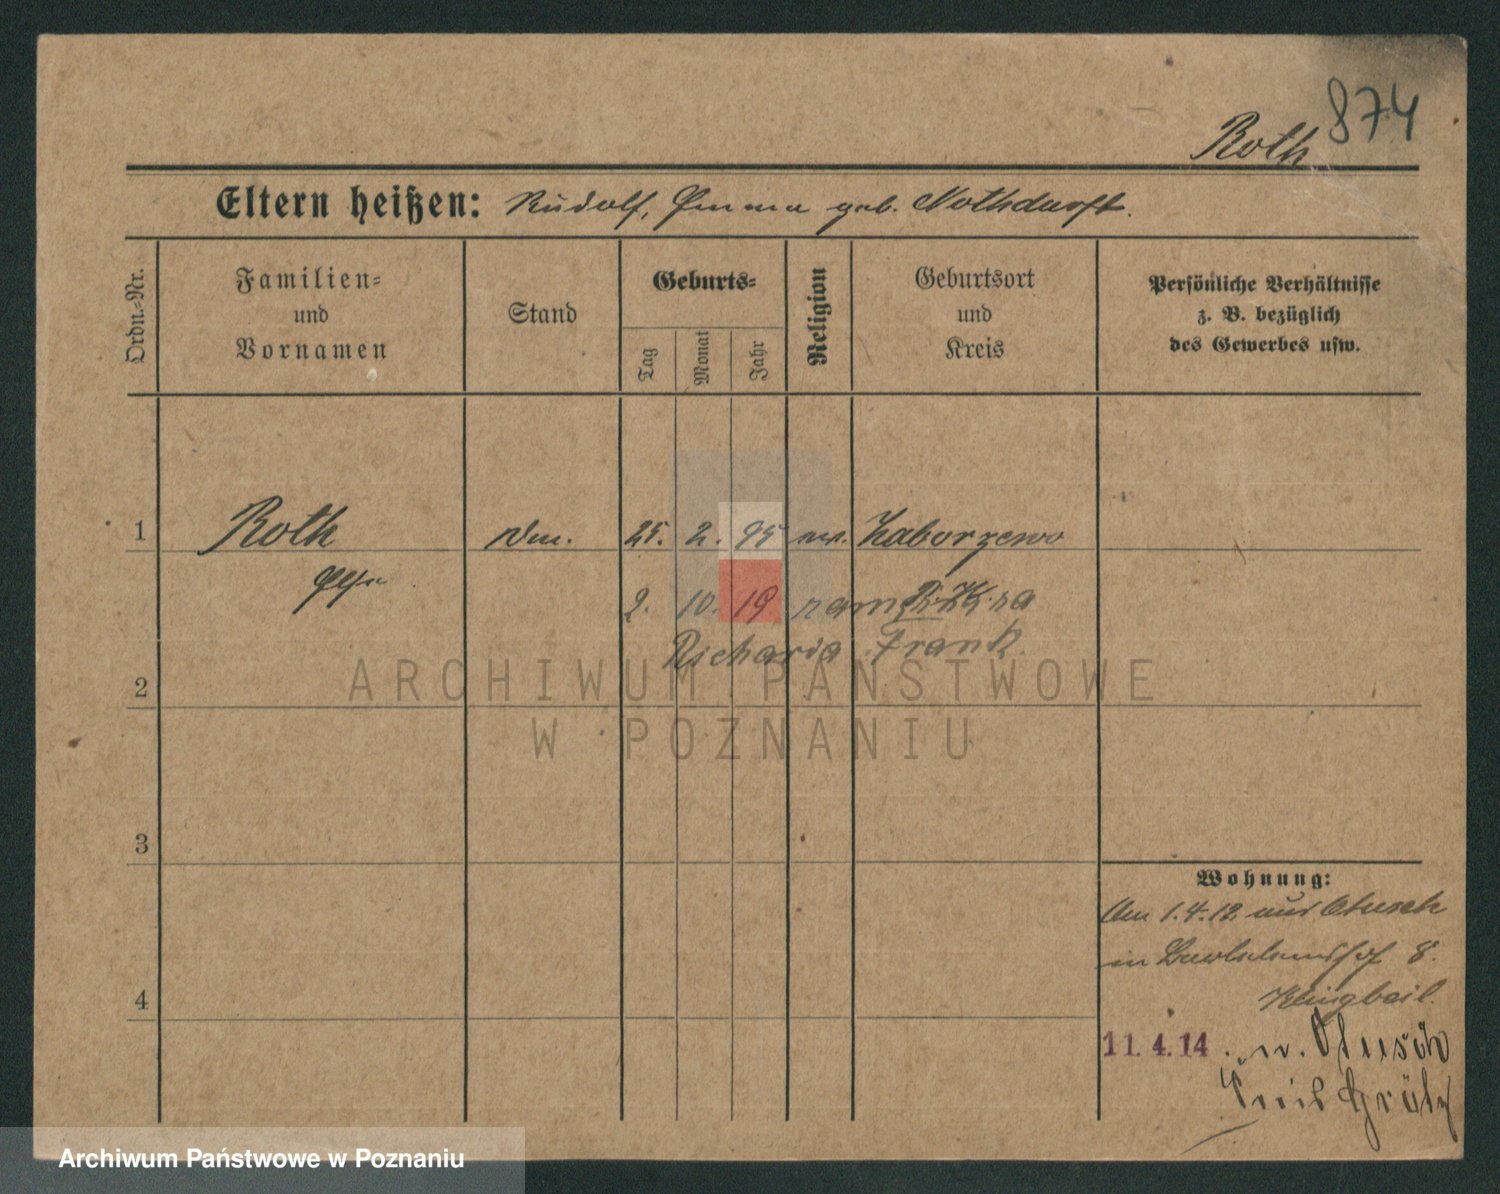 874
Roth
Eltern heißen: Rudolf, Emma geb. Nothdurft.
Ordn.-Nr.
Familien-
und
Vornamen
Stand
Geburts-
Tag
Monat
Jahr
Religion
Geburtsort
und
Kreis
Persönliche Verhältnisse
z. B. bezüglich
des Gewerbes usw.
1 Roth 25. 2. 95 ev. Zaborzewo
2. 10. 19
Richard Frank
2
ARCHIWUM PAŃSTWOWE
W POZNANIU
3
4
Wohnung:
Am 1.4.12. aus Otusch
in 8.
Klingbeil.
11.4.14. n. Otusch
Kreis Grätz
Archiwum Państwowe w Poznaniu